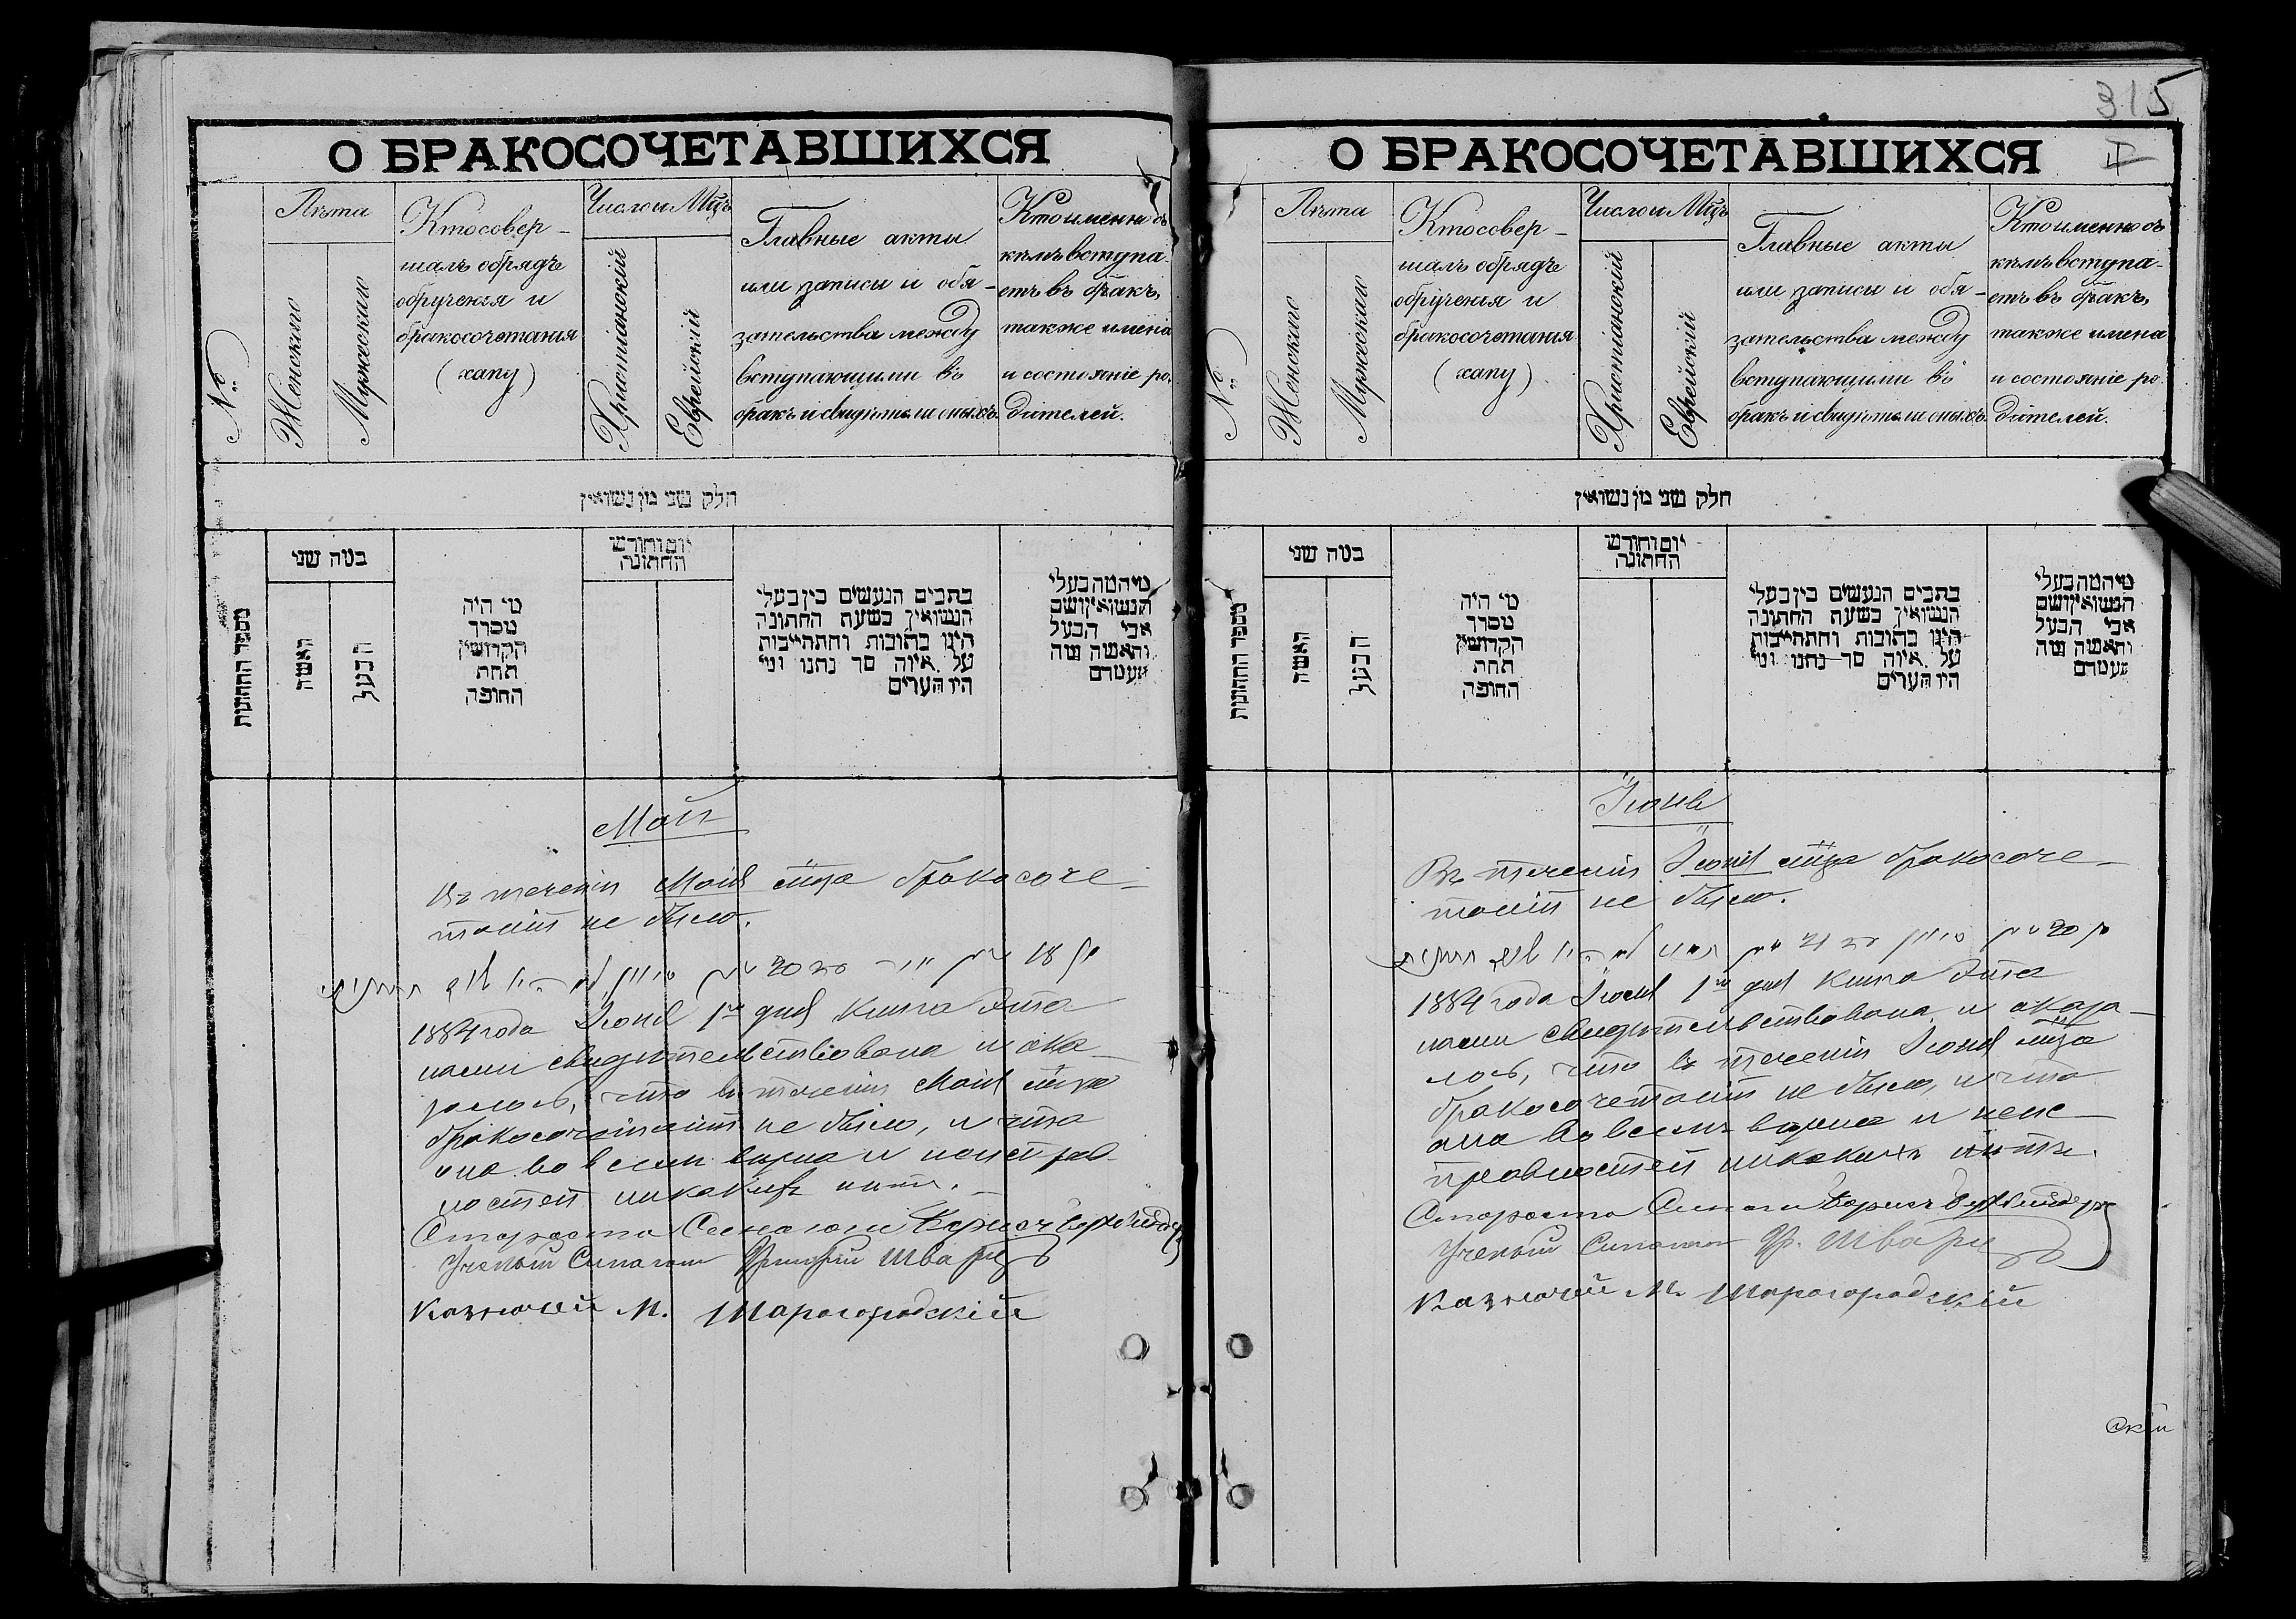 О БРАКОСОЧЕТАВШИХСЯ
№
Лѣта
Женскаго
Мужескаго
Кто совер-
шалъ обрядъ
обрученія и
бракосочетанія
(хапу)
Число и Мѣцъ
Христіанскій
Еврейскій
Главные акты
или записи и обя-
зательства между
вступающими въ
бракъ и свидѣтели оныхъ.
Кто именно съ
кѣмъ вступа-
етъ въ бракъ,
также имена
и состояніе ро-
дителей.
חלק שני מן נשואין
מספר החתונות
במה שני
האשה
הבעל
מי היה
מסדר
הקדושין
תחת
החופה
יום וחודש
החתונה
כתבים הנעשים בין בעלי
הנשואין בשעת החתונה
היינו כתובות והתחייבות
על איזה סך נתנו ומי
היו העדים
מי המה בעלי
הנשואין ושם
אבי הבעל
והאשה ומה
מעמדם
Май
Въ теченіи Маія мѣца бракосоче-
таній не было.
1884 года Іюня 1го дня книга эта
нами свидѣтельствована и ока-
залось, что въ теченіи Маія мѣца
бракосочетаній не было, и что
она во всемъ вѣрна и неисправ-
ностей никакихъ нѣтъ.
Староста Синагоги Борисъ
Ученый Синагоги Шварц
Казначей М. Шарогродскій
315
О БРАКОСОЧЕТАВШИХСЯ
№
Лѣта
Женскаго
Мужескаго
Кто совер-
шалъ обрядъ
обрученія и
бракосочетанія
(хапу)
Число и Мѣцъ
Христіанскій
Еврейскій
Главные акты
или записи и обя-
зательства между
вступающими въ
бракъ и свидѣтели оныхъ.
Кто именно съ
кѣмъ вступа-
етъ въ бракъ,
также имена
и состояніе ро-
дителей.
חלק שני מן נשואין
מספר החתונות
במה שני
האשה
הבעל
מי היה
מסדר
הקדושין
תחת
החופה
יום וחודש
החתונה
כתבים הנעשים בין בעלי
הנשואין בשעת החתונה
היינו כתובות והתחייבות
על איזה סך נתנו ומי
היו העדים
מי המה בעלי
הנשואין ושם
אבי הבעל
והאשה ומה
מעמדם
Іюнь
Въ теченіи Іюня мѣца бракосоче-
таній не было.
1884 года Іюля 1го дня книга эта
нами свидѣтельствована и оказа-
лось, что въ теченіи Іюня мѣца
бракосочетаній не было, и что
она во всемъ вѣрна и неис-
правностей никакихъ нѣтъ.
Староста Синагоги Борисъ
Ученый Синагоги Гр. Шварц
Казначей М. Шарогородскій
скій